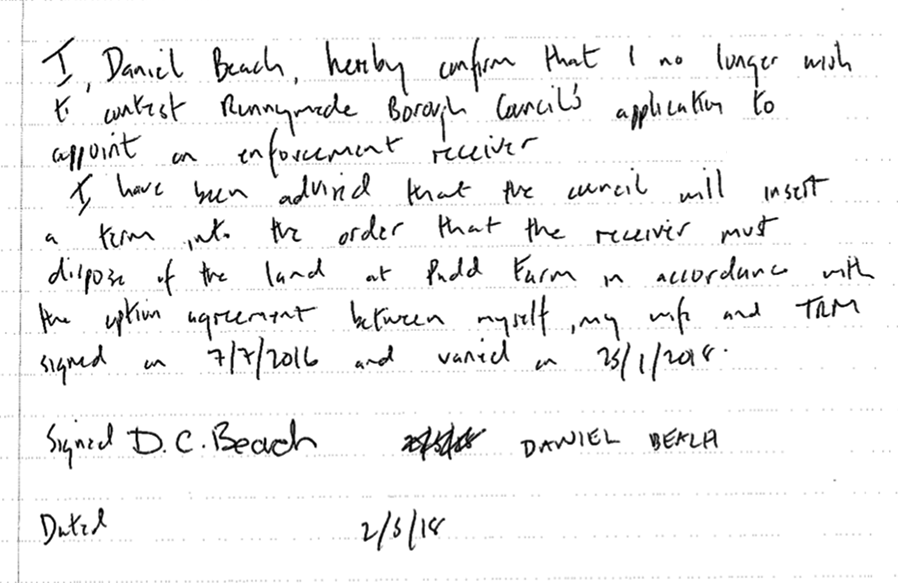 I, Daniel Beach, hereby confirm that I no longer wish
to contest Runnymede Borough Council's application to
appoint an enforcement receiver
I have been advised that the council will insert
a term into the order that the receiver must
dispose of the land at Padd Farm in accordance with
the option agreement between myself, my wife and TRM
signed on 7/7/2016 and varied on 25/1/2018.
Signed D.C. Beach DANIEL BEACH
Dated 2/5/18